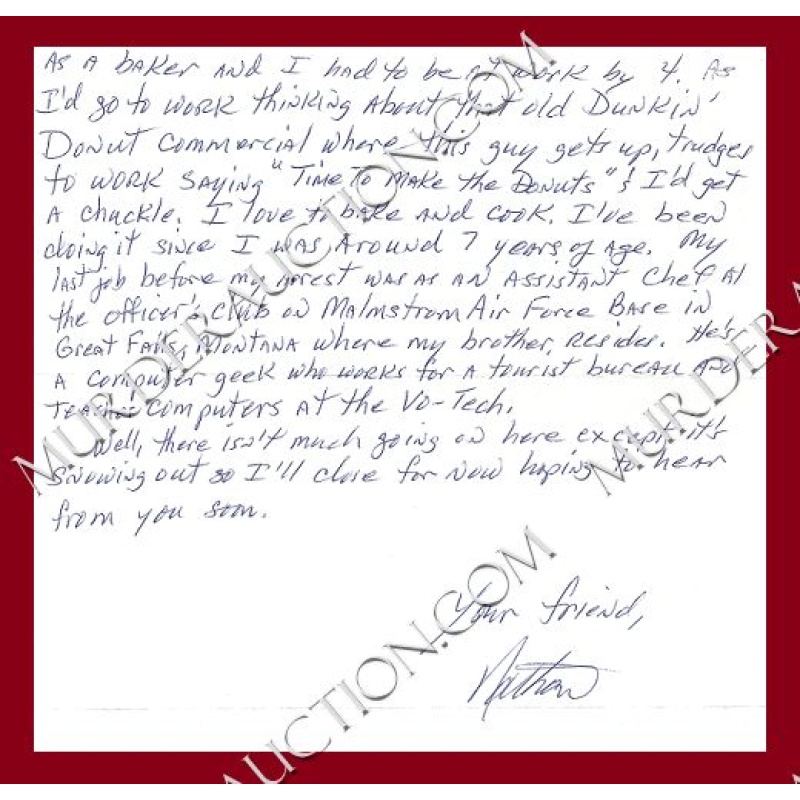 As A baker AND I had to be at work by 4. As
I'd go to work thinking About that old Dunkin'
Donut Commercial where this guy gets up, trudges
to work saying "Time To Make the Donuts" & I'd get
A chuckle. I love to bake AND cook. I've been
doing it since I was Around 7 years of age. My
last job before my arrest was as AN Assistant Chef At
the officer's club on Malmstrom Air Force Base in
Great Falls, Montana where my brother resides. He's
A computer geek who works for A tourist bureau AND
teaches computers At the Vo-Tech.
Well, there isn't much going on here except it's
snowing out so I'll close for now hoping to hear
from you soon.
Your friend,
Nathan
MURDERAUCTION.COM
MURDERAUCTION.COM